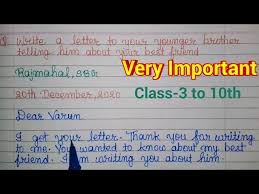 Q Write a letter to your younger brother
telling him about your best friend
Rajmahal, SBG.
Very Important
20th December, 2020
Class-3 to 10th
Dear Varun
I got your letter. Thank you for writing
to me. You wanted to know about my best
friend. I am writing you about him.